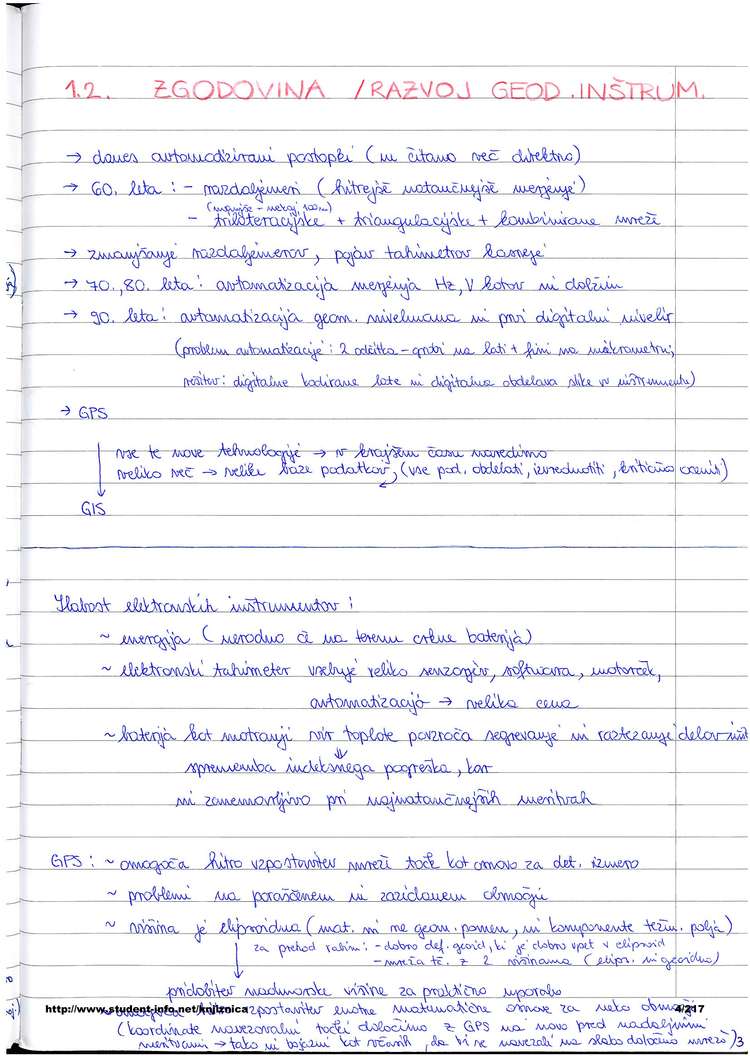 1.2. ZGODOVINA / RAZVOJ GEOD. INŠTRUM.
→ danes avtomatizirani postopki (in čitamo več direktno)
→ 60. leta : - razdaljemeri (hitrejše natančnejše merjenje)
(manjše - nekaj 100m)
- trilateracijske + triangulacijske + kombinirane mreže
→ zmanjšanje razdaljemerov, pojav tahimetrov kasneje
→ 70., 80. leta : avtomatizacija merjenja Hz, V kotov in dolžin
→ 90. leta : avtomatizacija geom. nivelmana in prvi digitalni nivelir
(problem avtomatizacije : 2 odčitka - grobi na lati + fini na mikrometru,
rešitev : digitalne kodirane late in digitalna obdelava slike v inštrumentu)
→ GPS
vse te nove tehnologije → v krajšem času naredimo
veliko več → velike baze podatkov, (vse pod. obdelati, izvrednotiti, kritično oceniti)
GIS
Slabost elektronskih inštrumentov :
~ energija (nerodno če na terenu crkne baterija)
~ elektronski tahimeter vsebuje veliko senzorjev, softwara, motorček,
avtomatizacijo → velika cena
~ baterija kot notranji vir toplote povzroča segrevanje in raztezanje delov inšt
sprememba indeksnega pogreška, kar
ni zanemarljivo pri najnatančnejših meritvah
GPS : ~ omogoča hitro vzpostavitev mreži točk kot osnovo za det. izmero
~ problemi na poraščenem in zazidanem območju
~ višina je elipsoidna (mat. in ne geom. pomen, ni komponente težn. polja)
za prehod rabim : - dobro def. geoid, ki je dobro vpet v elipsoid
- mreža tč. z 2 višinama (elips. in geoidno)
pridobitev nadmorske višine za praktično uporabo
http://www.student-info.net/knjiznica 4/217
vzpostavitev enotne matematične osnove za neko območje
(koordinate navezovalni točki določimo z GPS na novo pred nadaljnimi
meritvami → tako ni bojazni kot včasih, da bi se navezali na slabo določeno mrežo) 3